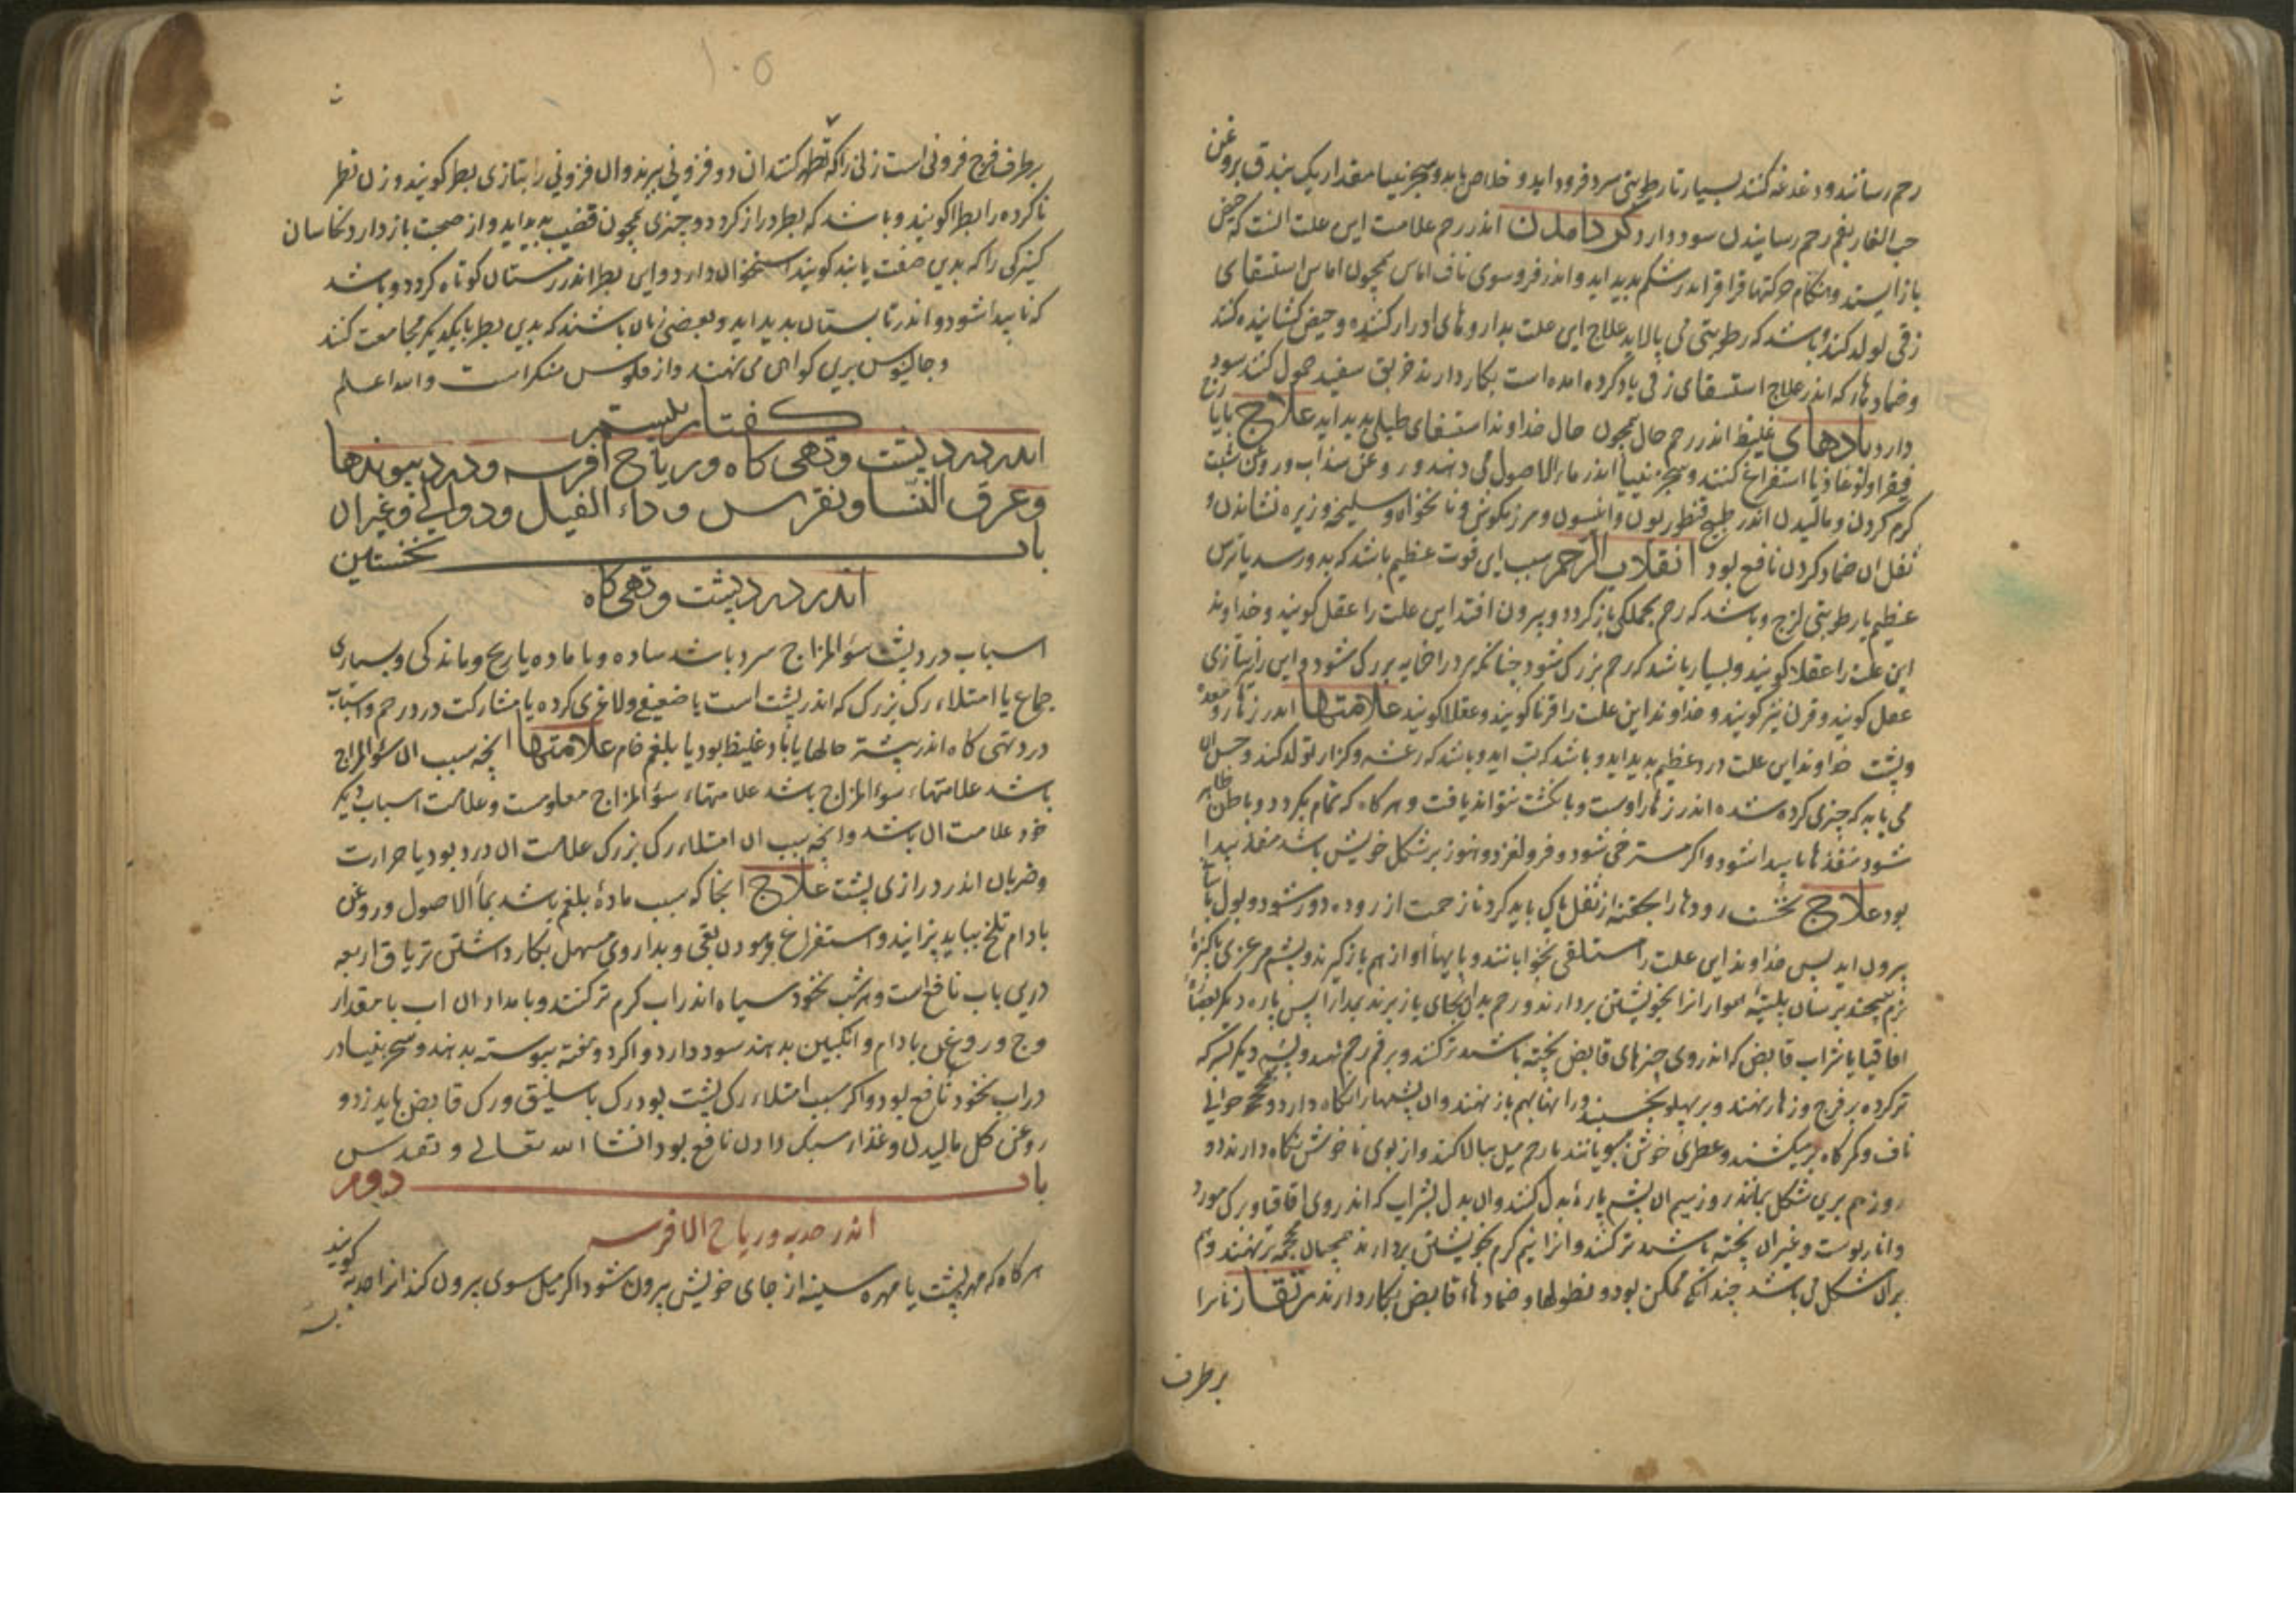 رحم رسانند و دغدغه کنند بسیار تا رطوبتی سرد فرود اید و خلاص یابد و سجزنیا مقدار یک بندق بروغن
حب الغار بفم رحم رسانیدن سود دارد اندر رحم علامت این علت انست که حیض
باز ایستد و هنگام حرکتها قراقر اندر شکم بدید اید و اندر فروسوی ناف اماس همچون اماس استسقای
زقی تولد کند و باشد که رطوبتی می پالاید علاج این علت بداروهای ادرار کننده و حیض کشاینده کنند
و ضمادها که اندر علاج استسقای زقی یاد کرده امده است بکار دارند خربق سفید حمول کنند سود
دارد بادهای غلیظ اندر رحم حال همچون حال خداوند استسقای طبلی بدید اید علاج بایارج
فیقرا و لوغاذیا استفراغ کنند و سجزنییا اندر ماء الاصول می دهند و روغن سذاب و روغن شبت
کرم کردن و مالیدن اندر طبیخ قنطوریون و انیسون و مرزنکوش و نانخواه و سلیخه و زیره نشاندن و
ثفل ان ضماد کردن نافع بود انقلاب الرحم سبب این قوت عظیم باشد که بدو رسد یا ترس
عظیم یا رطوبتی لزج و باشد که رحم بجملکی باز کردد و بیرون افتد این علت را عقل کویند و خداوند
این علت را عقلا کویند و بسیار باشد که رحم بزرک شود چنانکه مرد را خایه بزرک شود و این را بتازی
عفل کویند و قرن نیز کویند و خداوند این علت را قرنا کویند و عفلا کویند علامتها اندر زهار و معده
و پشت خداوند این علت درد عظیم بدید اید و باشد که تب اید و باشد که رعشه و کزاز تولد کند و چنان
می یابد که چیزی کرد شده اندر زهار اوست و بانکشت بتواند یافت و هر کاه که تمام بکردد و باطن ظاهر
شود منفذها ناپیدا شود و اکر مسترخی شود و فرو لغزد و هنوز بر شکل خویش باشد منفذ پیدا
بود علاج نخست رودها را بحقنه از ثفل پاک باید کرد تا زحمت از روده دور شود و بول باسانی
بیرون اید پس خداوند این علت را استلقی بخوابانند و پایها او از هم باز کیرند و پشم مرعزی پاکیزه
نرم بپیچند بر سان پلیته هموار انرا بخویشتن بردارند و رحم بدان بجای باز برند بمدارا پس پاره دیکر بعصاره
اقاقیا یا شراب قابض که اندر وی چیزهای قابض پخته باشند تر کنند و بر فم رحم نهند و پشم دیکر بسرکه
تر کرده بر فرج و زهار نهند و بر پهلو بخسبد و رانها بهم باز نهند و ان پشمها را نکاه دارد و محجمه حوالی
ناف و کمرکاه بر میکشند و عطری خوش ببویانند تا رحم میل ببالا کند و از بوی ناخوش نکاه دارند دو
روز هم برین شکل بماند روز سیم ان پشم پاره بدل کنند و ان بدل بشراب که اندر وی اقاقیا و برک مورد
و انار پوست و غیر ان پخته باشند تر کنند و انرا نیم کرم بخویشتن بردارند همچنان محجمه بر نهند و هم
بران شکل می باشد چندانکه ممکن بود و نطولها و ضمادهاء قابض بکار دارند رتقا زنانرا
بر طرف
۱۰۵
بر طرف فرج فزونی است زنی را که تطهر کنند ان دو فزونی ببرند و ان فزونی را بتازی بظر کویند و زن تطهر
ناکرده را بظرا کویند و باشد که بظر دراز کردد و چیزی همچون قضیب بدید اید و از صحبت باز دارد نخاسان
کنیزکی را که بدین صفت یابند کویند استخوان دارد و این بظر اندر زمستان کوتاه کردد و باشد
که ناپیدا شود و اندر تابستان بدید اید و بعضی زنان باشند که بدین بظر با یکدیکر مجامعت کنند
و جالینوس برین کواهی می نهند و از فلوس منکر است والله اعلم
کفتار بیستم
اندر درد پشت و تهی کاه و ریاح افرسه و درد پیوندها
و عرق النسا و نقرس و داء الفیل و دوالی و غیر ان
باب نخستین
اندر درد پشت و تهی کاه
اسباب درد پشت سوء المزاج سرد باشد ساده و با ماده یا ریح و ماندکی و بسیاری
جماع یا امتلاء رک بزرک که اندر پشت است یا ضعیفی و لاغری کرده یا مشارکت درد رحم و اسباب
درد تهی کاه اندر بیشتر حالها یا باد غلیظ بود یا بلغم خام علامتها انچه سبب ان سوء المزاج
باشد علامتهاء سوء المزاج باشد علامتهاء سوء المزاج معلومست و علامت اسباب دیکر
خود علامت ان باشد و انچه سبب ان امتلاء رک بزرک علامت ان درد بود یا حرارت
و ضربان اندر درازی پشت علاج انجا که سبب مادهٔ بلغم باشد بماء الاصول و روغن
بادام تلخ بباید پزانید و استفراغ فرمودن بقی و بداروی مسهل بکار داشتن تریاق اربعه
درین باب نافع است و هر شب نخود سیاه اندر اب کرم تر کنند و بامدادان اب با مقدار
وج و روغن بادام و انکبین بدهند سود دارد و اکر دوخته پیوسته بدهند و سجزنیا در
دراب نخود نافع بود و اکر سبب امتلاء رک پشت بود رک باسلیق و رک قابض باید زد و
روغن کل مالیدن و غذاء سبک دادن نافع بود انشا الله تعالی و تقدس
باب دوم
اندر حدبه و ریاح الافرسه
هر کاه که مهره پشت یا مهره سینه از جای خویش بیرون شود اکر میل سوی بیرون کند انرا حدبه کویند